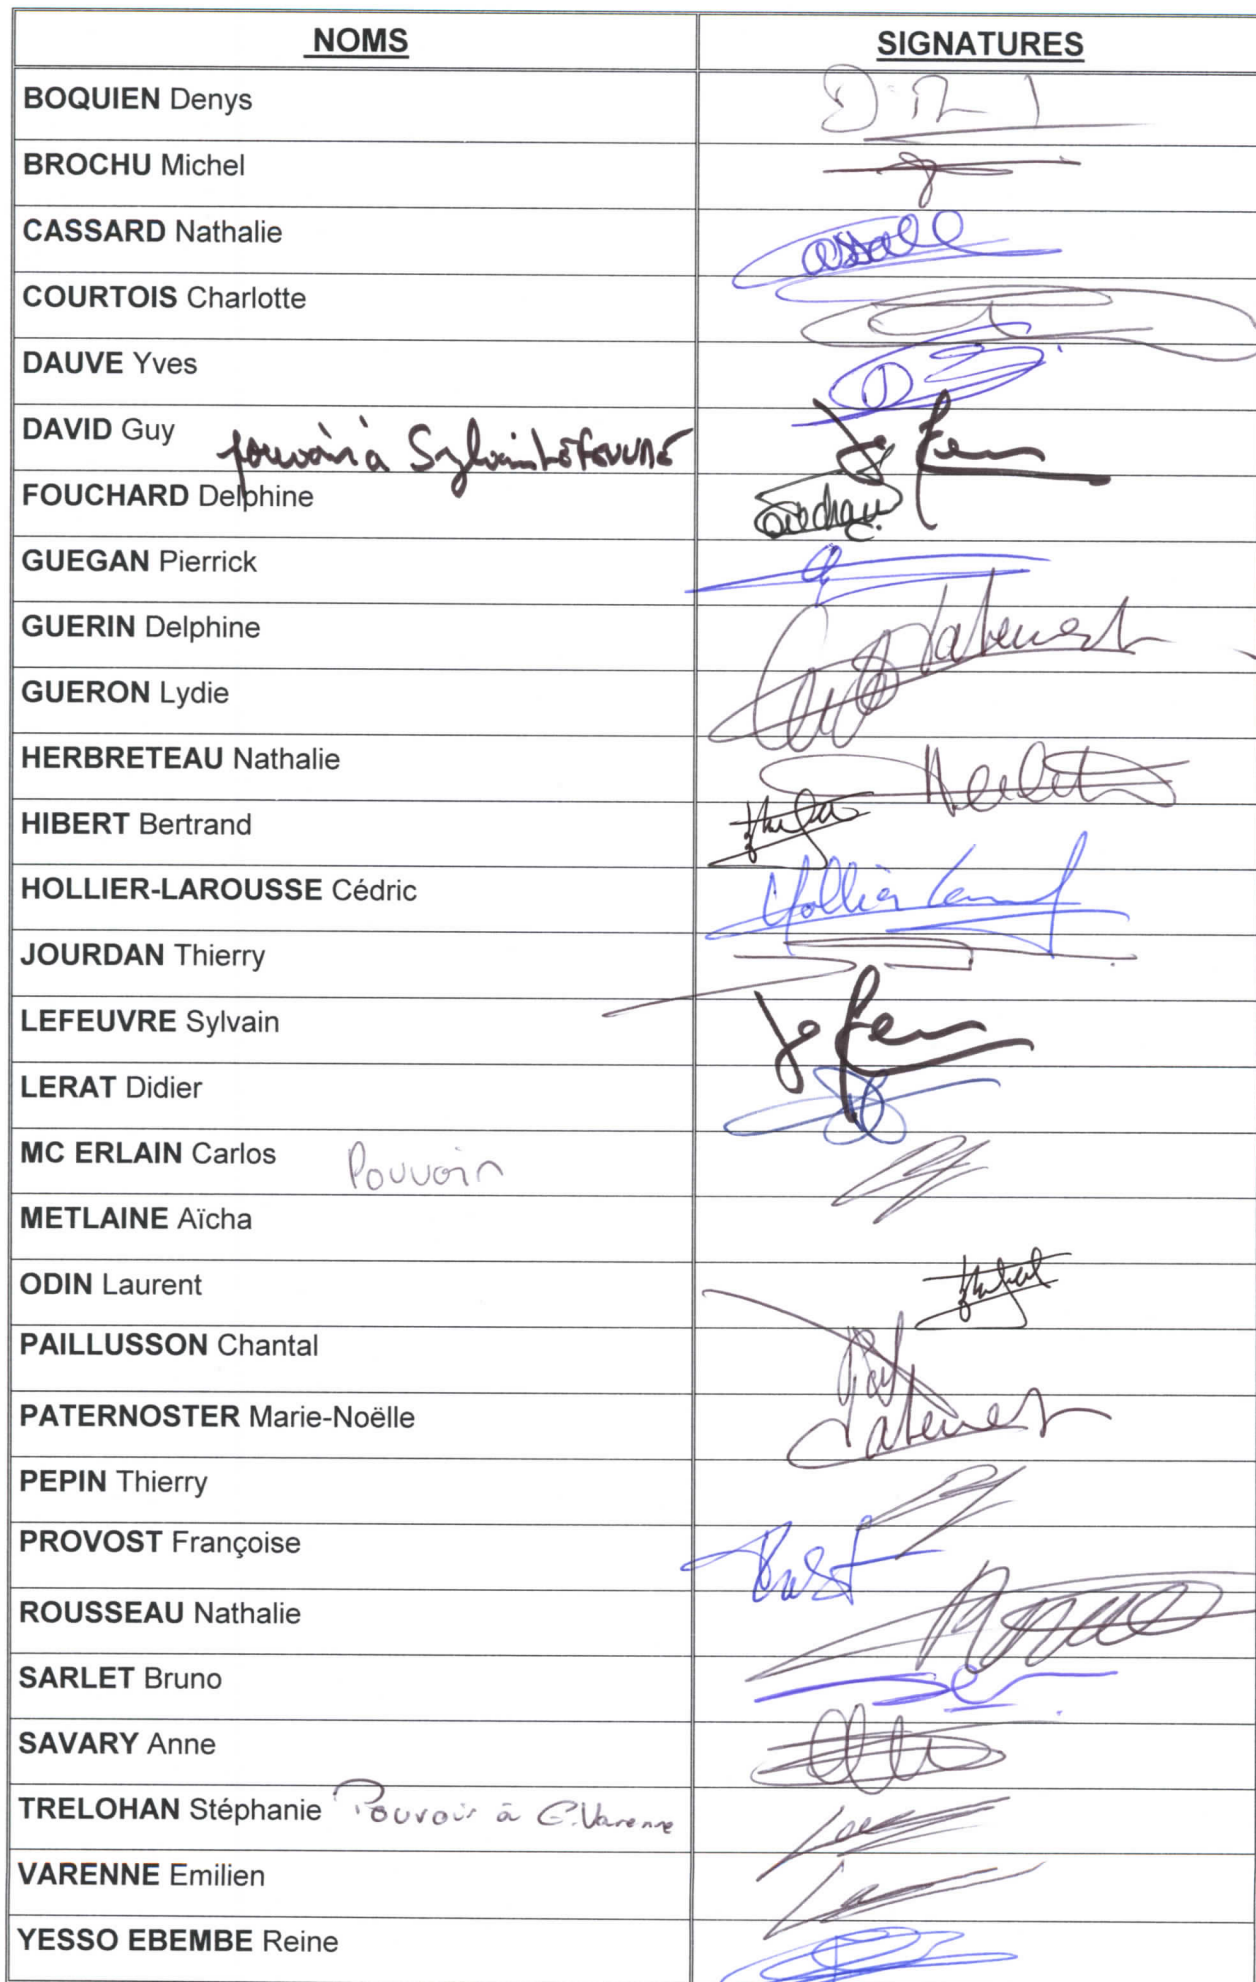 NOMS SIGNATURES
BOQUIEN Denys
BROCHU Michel
CASSARD Nathalie
COURTOIS Charlotte
DAUVE Yves
DAVID Guy pouvoir à Sylvain Lefeuvre
FOUCHARD Delphine
GUEGAN Pierrick
GUERIN Delphine
GUERON Lydie
HERBRETEAU Nathalie
HIBERT Bertrand
HOLLIER-LAROUSSE Cédric
JOURDAN Thierry
LEFEUVRE Sylvain
LERAT Didier
MC ERLAIN Carlos Pouvoir
METLAINE Aïcha
ODIN Laurent
PAILLUSSON Chantal
PATERNOSTER Marie-Noëlle
PEPIN Thierry
PROVOST Françoise
ROUSSEAU Nathalie
SARLET Bruno
SAVARY Anne
TRELOHAN Stéphanie Pouvoir à E. Varenne
VARENNE Emilien
YESSO EBEMBE Reine